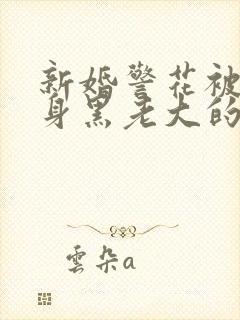 新婚警花被
身黑老大的
雲朵a